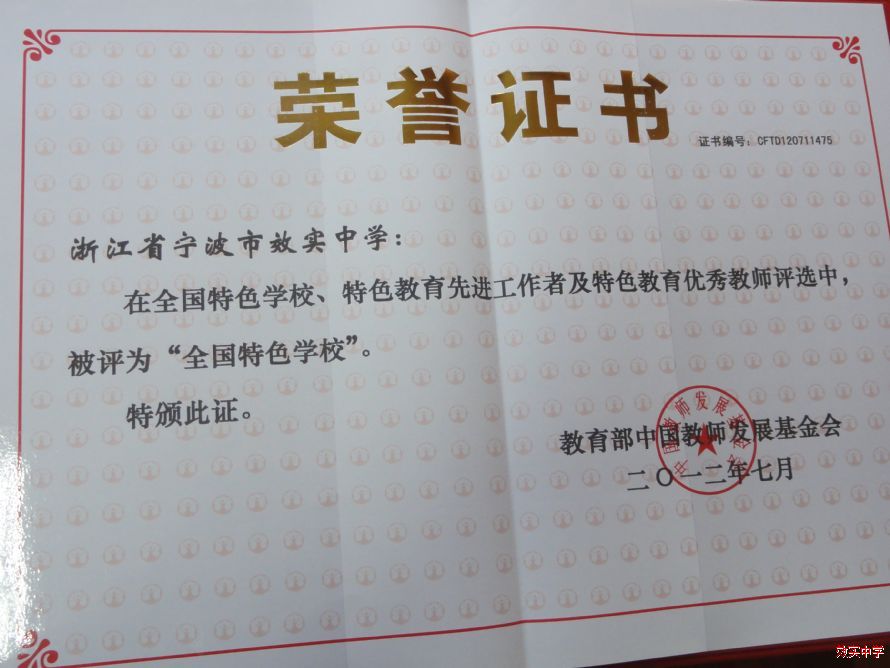 荣誉证书
证书编号：CFTD120711475
浙江省宁波市效实中学：
在全国特色学校、特色教育先进工作者及特色教育优秀教师评选中，
被评为“全国特色学校”。
特颁此证。
教育部中国教师发展基金会
二〇一二年七月
中国教师发展基金会
效实中学